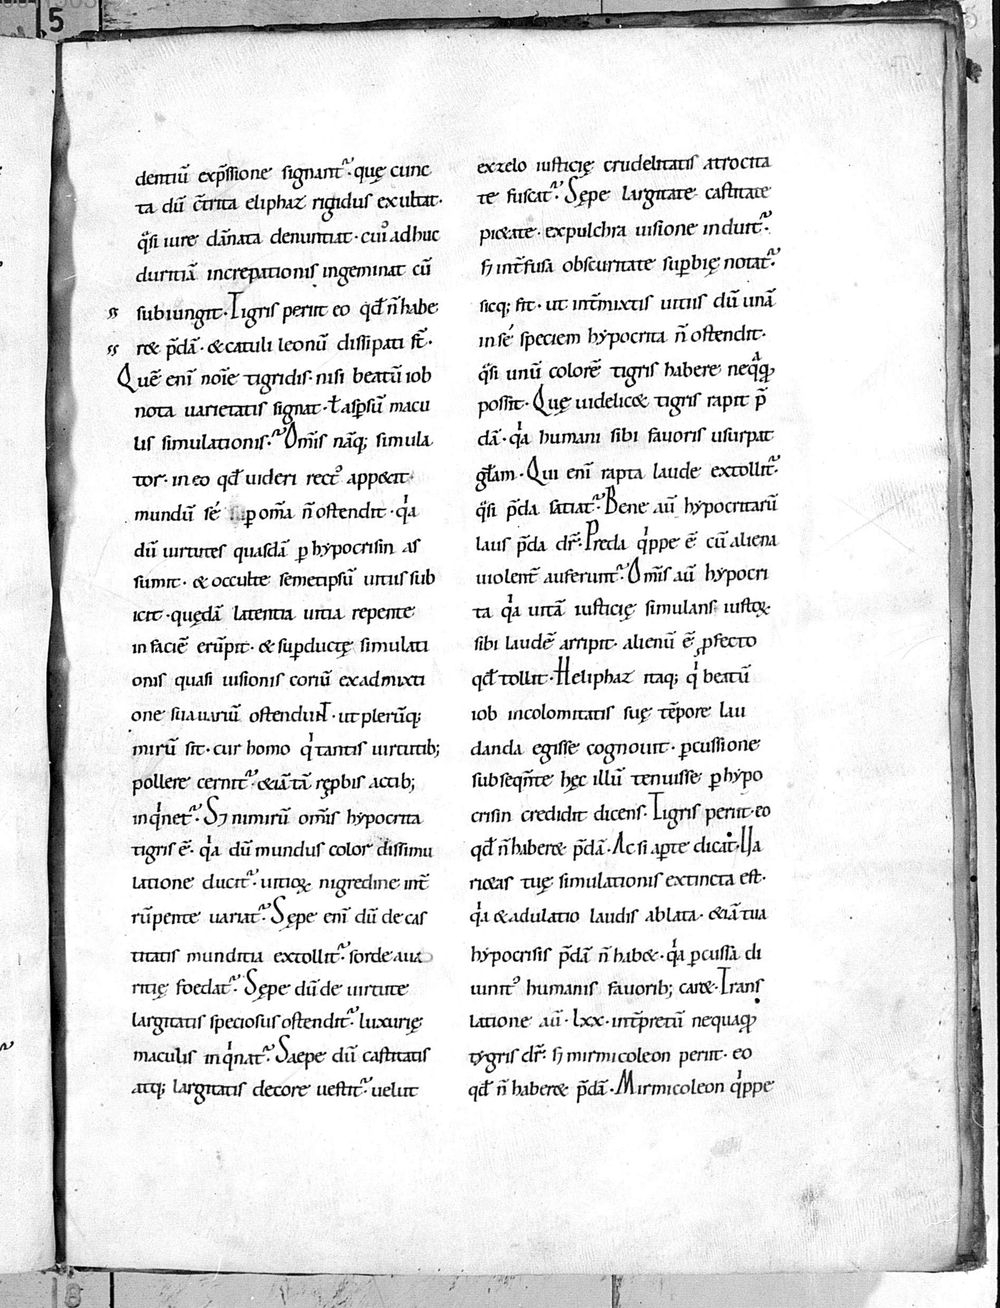 5
dentiu᷈ exp̃ssione signant᷑· quę cunc
ta dũ c̃trita eliphaz rigidus exultat·
q̃si iure dãnata denuntiat· cui᷒ adhuc
duritiã increpationis ingeminat cũ
subiungit· Tigris periit eo qđ ñ habe
r& p̃dã· & catuli leonũ dissipati st̃·
Quẽ eni᷈ noĩe tigridis· nisi beatũ iob
nota uarietatis signat· ł asꝑsũ macu
lis simulationis·᷑ Om̃is nãq; simula
tor· in eo qđ uideri rect᷒ appetit·
mundũ sé ꝑ om̃a ñ ostendit· qͣa
dũ uirtutes quasdã ꝑ hypocrisin as
sumit· & occulte semetipsũ uitiis sub
icit· quędã latentia uitia repente
in faciẽ erũpit· & suꝑductę simulati
onis quasi uisionis coriũ exadmixti
one sua uariũ ostenduNT· ut plerũq;
mirũ sit· cur homo qⁱ tantis uirtutib;
pollere cernit᷑· &iã tã rꝓbis actib;
inqⁱnet᷑· Sꝫ nimirũ om̃is hypocrita
tigris ẽ· qͥa dũ mundus color dissimu
latione ducit᷑· uitioꝝ nigredine int̃
rũpente uariat᷑· Sępe eni᷈ dũ de cas
titatis munditia extollit᷑· sorde aua
ritię foedat᷑· Sępe dũ de uirtute
largitatis speciosus ostendit᷑· luxurię
maculis inqⁱnat᷑· Saepe dũ castitatis
atq; largitatis decore uestit᷑· uelut
ex zelo iusticię crudelitatis atrocita
te fuscat᷑· Sępe largitate· castitate
pi&ate· ex pulchra uisione induit᷑·
sꝫ int̃fusa obscuritate suꝑbię notat᷑·
sicq; fit· ut int̃mixtis uitiis dũ unã
in sé speciem hypocrita ñ ostendit·
q̃si unũ colorẽ tigris habere neqͣqͣ
possit· Quę uidelic& tigris rapit p̃
dã· qͥa humani sibi fauoris usurpat
głam· Qui eni᷈ rapta laude extollit᷑·
q̃si p̃da satiat᷑· Bene aũ hypocritarũ
laus p̃da dr̃· Preda qⁱppe ẽ cũ aliena
uiolent̃ auferunt᷑· Om̃is aũ hypocri
ta qͥa uitã iusticię simulans· iustoꝝ
sibi laudẽ arripit· alienũ ẽ ꝓfecto
qđ tollit· Heliphaz itaq; qⁱ beatũ
iob incolomitatis suę tẽpore lau
danda egisse cognouit· ꝑcussione
subseqñte hęc illũ tenuisse ꝑ hypo
crisin credidit dicens· Tigris periit· eo
qđ ñ haber& p̃dã· Ac si aꝑte dicat· Ua
ri&as tuę simulationis extincta est·
qͥa & adulatio laudis ablata· &iã tua
hypocrisis p̃dã ñ hab&· qͥa ꝑcussa di
uinit᷒ humanis fauorib; car&· Trans
latione aũ· lxx· int̃pretũ nequaqͣ
tygris dr̃· sꝫ mirmicoleon periit· eo
qđ ñ haber& p̃dã· Mirmicoleon qⁱppe